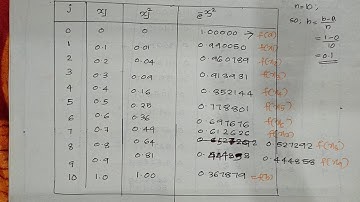 j xj xj² e^-xj²
n=10,
0 0 0 1.00000 → f(0)
so, h = b-a/n
1 0.1 0.01 0.990050 f(x1)
= 1-0/10
2 0.2 0.04 0.960789 f(x2)
= 0.1
3 0.3 0.09 0.913931 f(x3)
4 0.4 0.16 0.852144 f(x4)
5 0.5 0.25 0.778801 f(x5)
6 0.6 0.36 0.697676 f(x6)
7 0.7 0.49 0.612626 f(x7)
8 0.8 0.64 0.527292 f(x8)
9 0.9 0.81 0.444858 f(x9)
10 1.0 1.00 0.367879